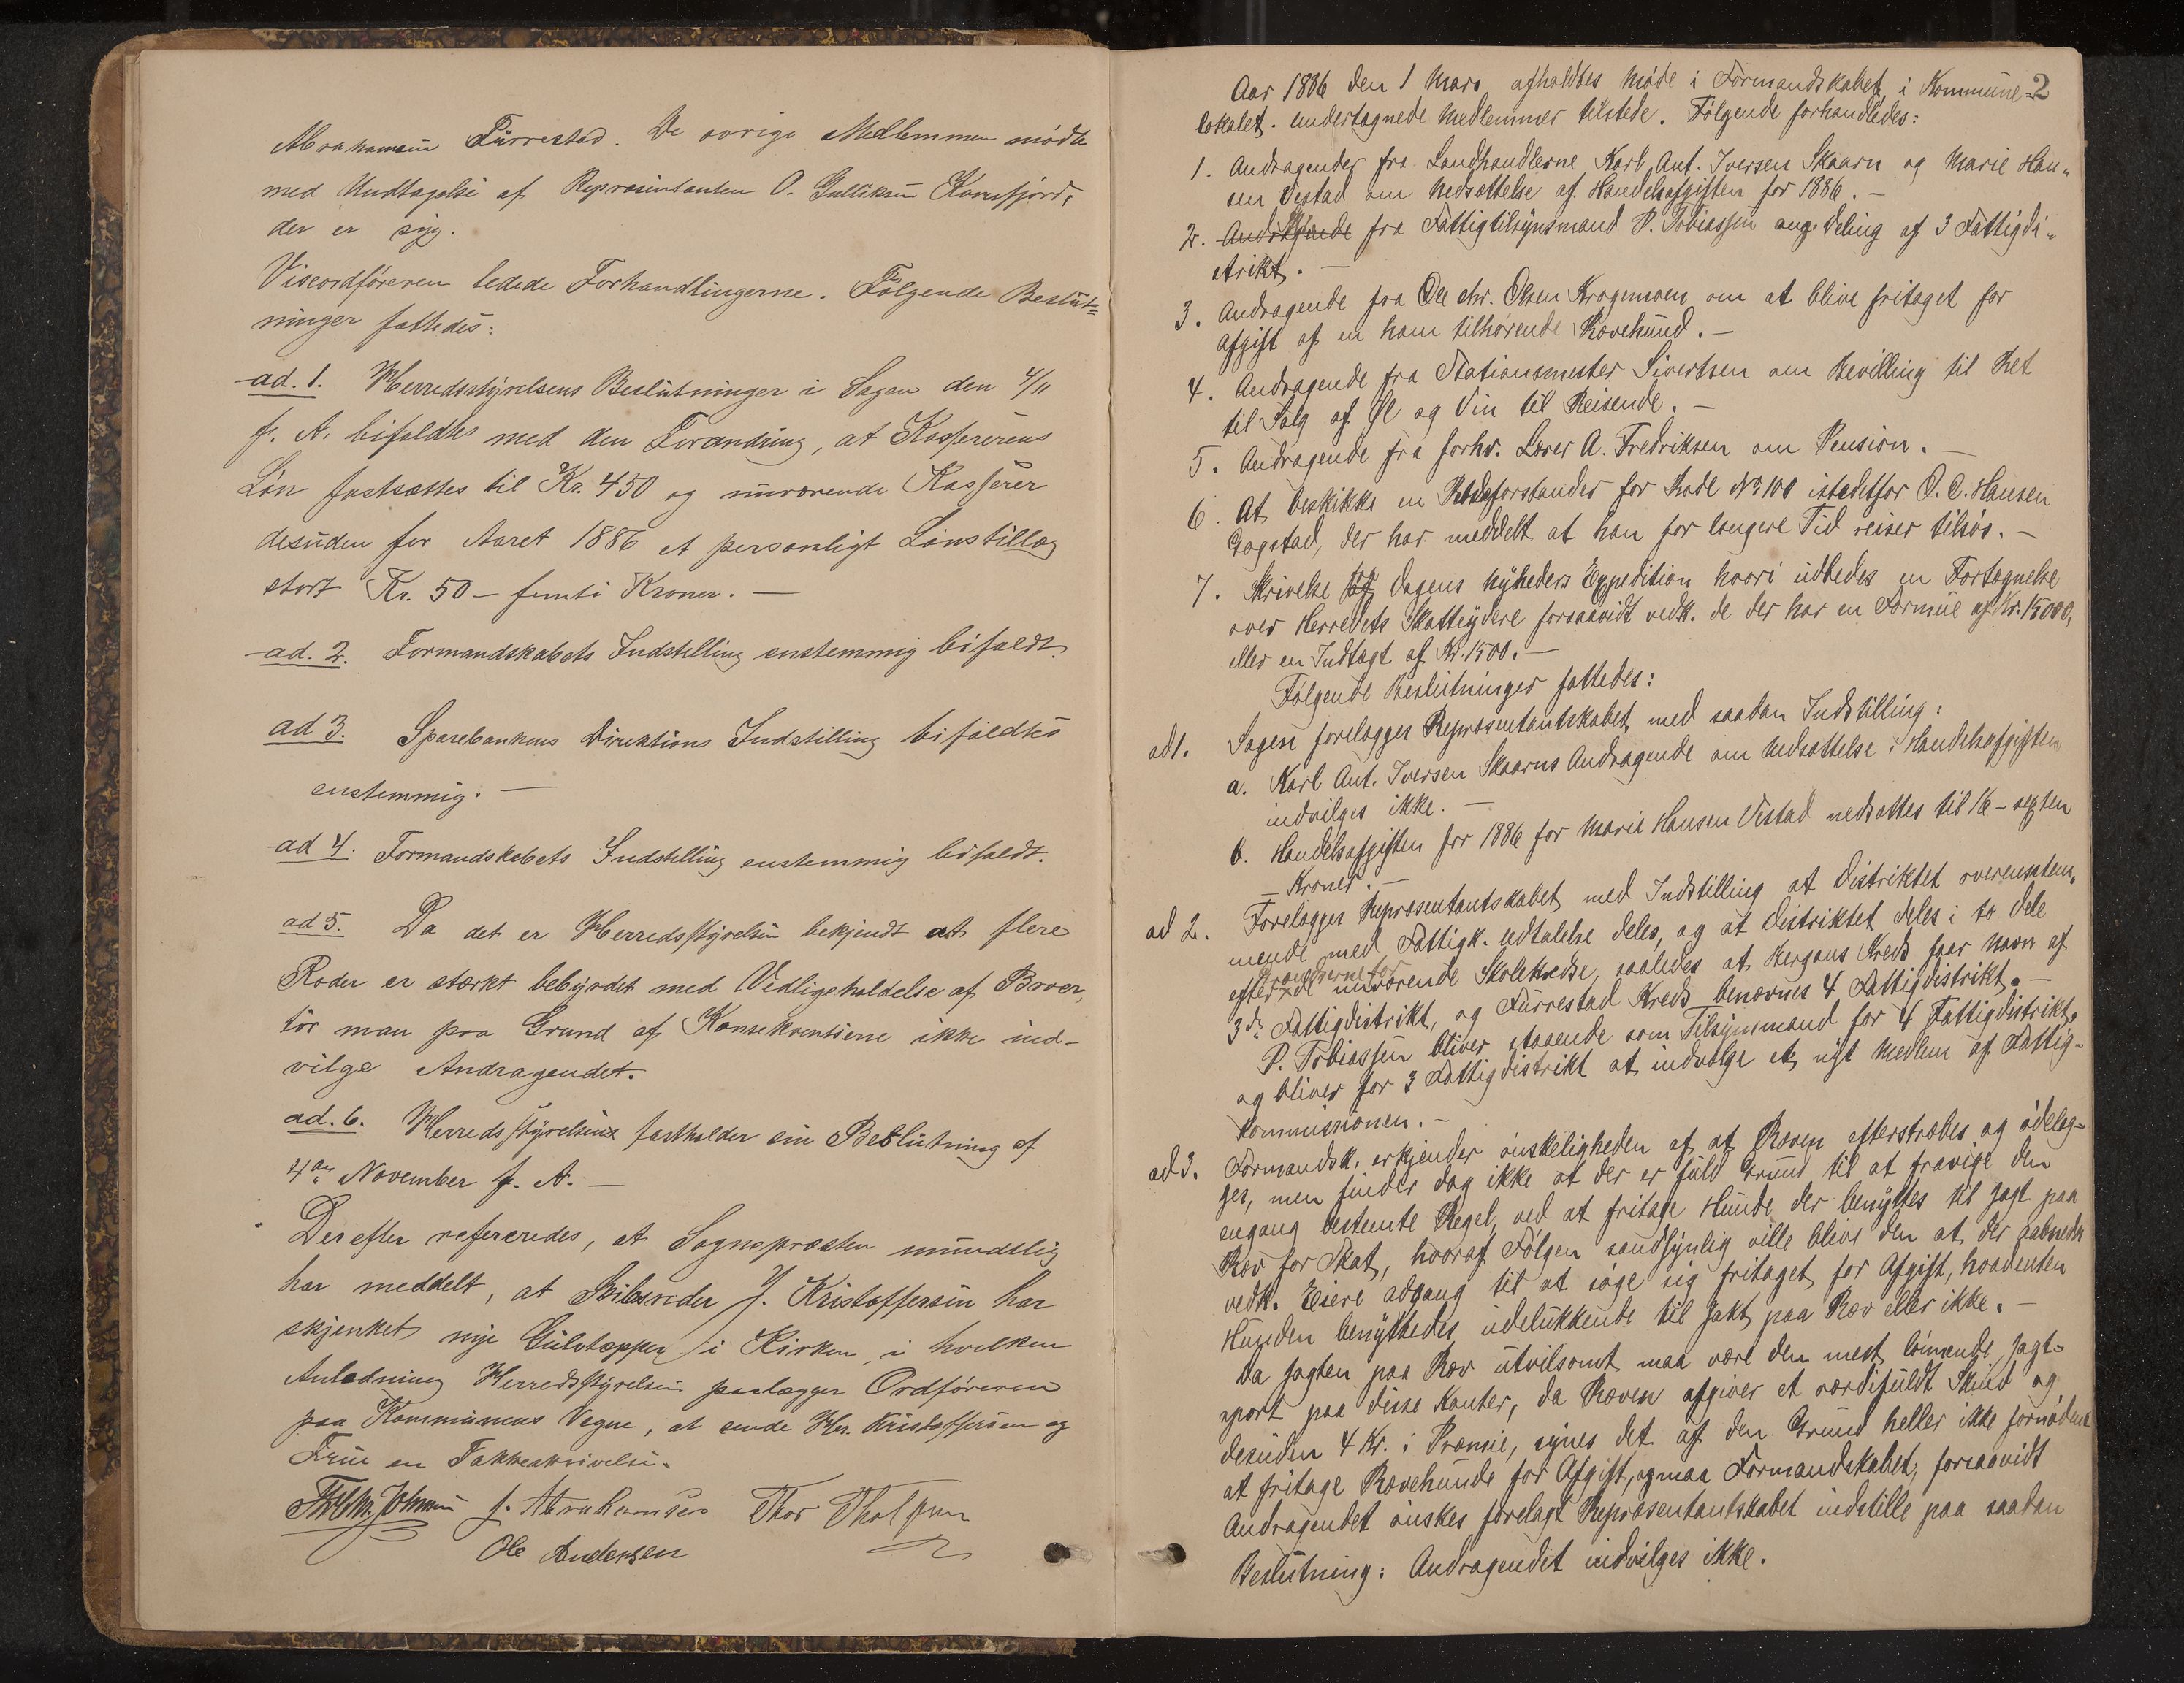 Abrahamsen Furrestad. De øvrige Medlemmer mødte
med Undtagelse af Repræsentanten O. Gulliksen Kornfjord,
der er syg.
Viceordføreren ledede Forhandlingerne. Følgende Beslut=
ninger fattedes:
ad. 1. Herredsstyrelsens Beslutninger i Sagen den 4/11
f. A. bifaldtes med den Forandring, at Kassererens
Løn fastsættes til Kr. 450 og nuværende Kasserer
desuden for Aaret 1886 et personligt Lønstillæg
stort Kr. 50 – femti Kroner. —
ad. 2. Formandskabets Indstilling enstemmig bifaldt.
ad 3. Sparebankens Direktions Indstilling bifaldtes
enstemmig. —
ad 4. Formandskabets Indstilling enstemmig bifaldt.
ad 5. Da det er Herredsstyrelsen bekjendt at flere
Roder er stærkt bebyrdet med Vedligeholdelse af Broer,
tør man paa Grund af Konsekventserne ikke ind-
vilge Andragendet.
ad. 6. Herredsstyrelsen fastholder sin Beslutning af
4de November f. A. —
Derefter refereredes, at Sognepræsten mundtlig
har meddelt, at Skibsreder J. Kristoffersen har
skjenket nye Gulvtæpper i Kirken, i hvilken
Anledning Herredsstyrelsen paalægger Ordføreren
paa Kommunens Vegne, at sende Hr. Kristoffersen og
Frue en Takkeskrivelse.
J. Abrahamsen Thor
Ole Andersen
2
Aar 1886 den 1 Mars afholdtes Møde i Formandskabet i Kommune-
lokalet. Undertegnede Medlemmer tilstede. Følgende forhandledes:
1. Andragender fra Landhandlerne Karl Ant. Iversen Skaarn og Marie Han-
sen Vestad om Nedsættelse af Handelsafgiften for 1886. —
2. Andragende fra Fattigtilsynsmand P. Tobiassen ang. Deling af 3 Fattigdi-
strikt. —
3. Andragende fra Ole Chr. Olsen Krogenmoen om at blive fritaget for
Afgift af en ham tilhørende Rævehund. —
4. Andragende fra Stationsmester Sivertsen om Bevilling til Ret
til Salg af Øl og Vin til Reisende. —
5. Andragende fra forhv. Lærer A. Fredriksen om Pension. —
6. At beskikke en Rodeforstander for Rode No 100 istedetfor O. C. Hansen
Gogstad, der har meddelt at han for længere Tid reiser tilsøs. —
7. Skrivelse fra Dagens Nyheders Expedition hvori udbedes en Fortegnelse
over Herredets Skatteydere forsaavidt vedk. de der har en Formue af Kr. 15000,
eller en Indtægt af Kr. 1500. —
Følgende Beslutninger fattedes:
ad 1. Sagen forelægges Repræsentantskabet med saadan Indstilling:
a. Karl Ant. Iversen Skaarns Andragende om Nedsættelse i Handelsafgiften
indvilges ikke. —
b. Handelsafgiften for 1886 for Marie Hansen Vestad nedsættes til 16 – sexten
– Kroner. —
ad 2. Forelægges Repræsentantskabet med Indstilling at Distriktet overensstem-
mende med Fattigk. Udtalelse deles, og at Distriktet deles i to Dele
efter Grændserne for de nuværende Skolekredse, saaledes at Bergans Kreds faar Navn af
3de Fattigdistrikt, og Furrestad Kreds benævnes 4 Fattigdistrikt. —
P. Tobiassen bliver staaende som Tilsynsmand for 4 Fattigdistrikt,
og bliver for 3 Fattigdistrikt at indvælge et nyt Medlem af Fattig-
kommissionen. —
ad 3. Formandsk. erkjender ønskeligheden af at Ræven efterstræbes og ødelæg-
ges, men finder dog ikke at der er fuld Grund til at fravige den
engang bestemte Regel, ved at fritage Hunde der benyttes til Jagt paa
Ræv for Skat, hvoraf Følgen sandsynlig ville blive den at der aabnedes
vedk. Eiere adgang til at søge sig fritaget for Afgift, hvadenten
Hunden benyttedes udelukkende til Jakt paa Ræv eller ikke. —
Da Jagten paa Ræv utvilsomt maa være den mest lønnende Jagt-
sport paa disse Kanter, da Ræven afgiver et værdifuldt Skind og
desuden 4 Kr. i Præmie, synes det af den Grund heller ikke fornødent
at fritage Rævehunde for Afgift, og maa Formandskabet, forsaavidt
Andragendet ønskes forelagt Repræsentantskabet indstille paa saadan
Beslutning: Andragendet indvilges ikke.